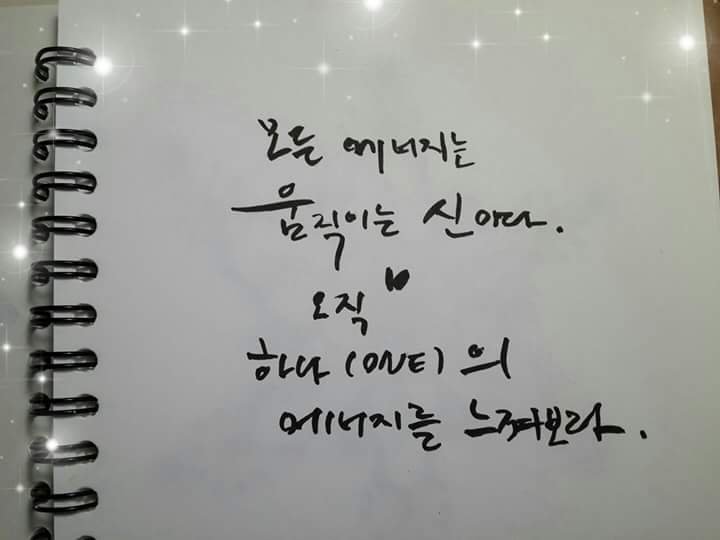 모든 에너지는
움직이는 신이다.
오직
하나 (ONE) 의
에너지를 느껴보라.